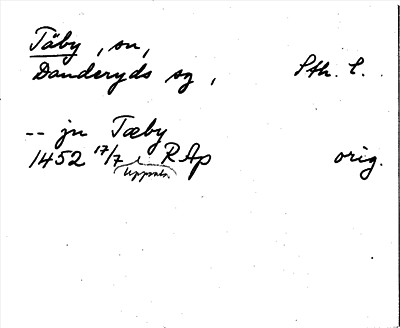 Täby, sn,
Danderyds sg, Sth. l.
-- jn Tæby
1452 17/7 Uppsala RAp orig.